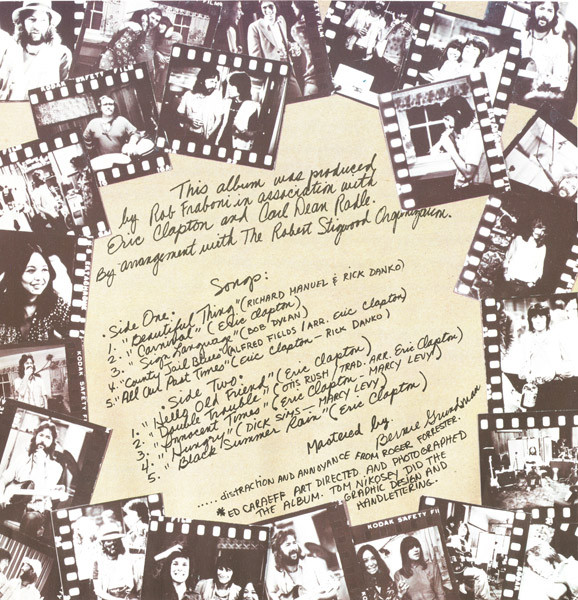 KODAK SAFETY
This album was produced
by Rob Fraboni in association with
Eric Clapton and Carl Dean Radle.
By arrangement with The Robert Stigwood Organization.
Songs:
Side One:
1. "Beautiful Thing" (RICHARD MANUEL & RICK DANKO)
2. "Carnival" (Eric Clapton)
3. "Sign Language" (BOB DYLAN)
4. "County Jail Blues" (ALFRED FIELDS/ARR. Eric Clapton)
5. "All Our Past Times" (Eric Clapton - RICK DANKO)
Side Two:
1. "Hello Old Friend" (Eric Clapton)
2. "Double Trouble" (OTIS RUSH/TRAD. ARR. Eric Clapton)
3. "Innocent Times" (Eric Clapton - MARCY LEVY)
4. "Hungry" (DICK SIMS - MARCY LEVY)
5. "Black Summer Rain" (Eric Clapton)
Mastered by
Bernie Grundman
..... DISTRACTION AND ANNOYANCE FROM ROGER FORRESTER.
*ED CARAEFF ART DIRECTED AND PHOTOGRAPHED
THE ALBUM. TOM NIKOSEY DID THE
GRAPHIC DESIGN AND
HANDLETTERING.
KODAK SAFETY
KODAK SAFETY FI